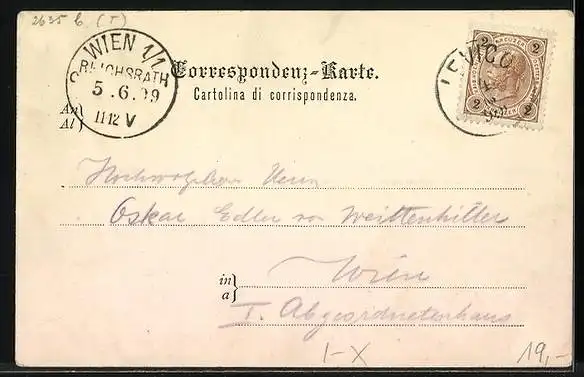 2635 b (T)
WIEN 1/1
REICHSRATH
5.6.99
11-12 V
Correspondenz-Karte.
Cartolina di corrispondenza.
LEVICO
2 KREUZER 2
2 2
An
Al
Hochwolgeboren Herrn
Oskar Edler von Weittenhiller
in
a
Wien
I. Abgeordnetenhaus
I-X
19,-